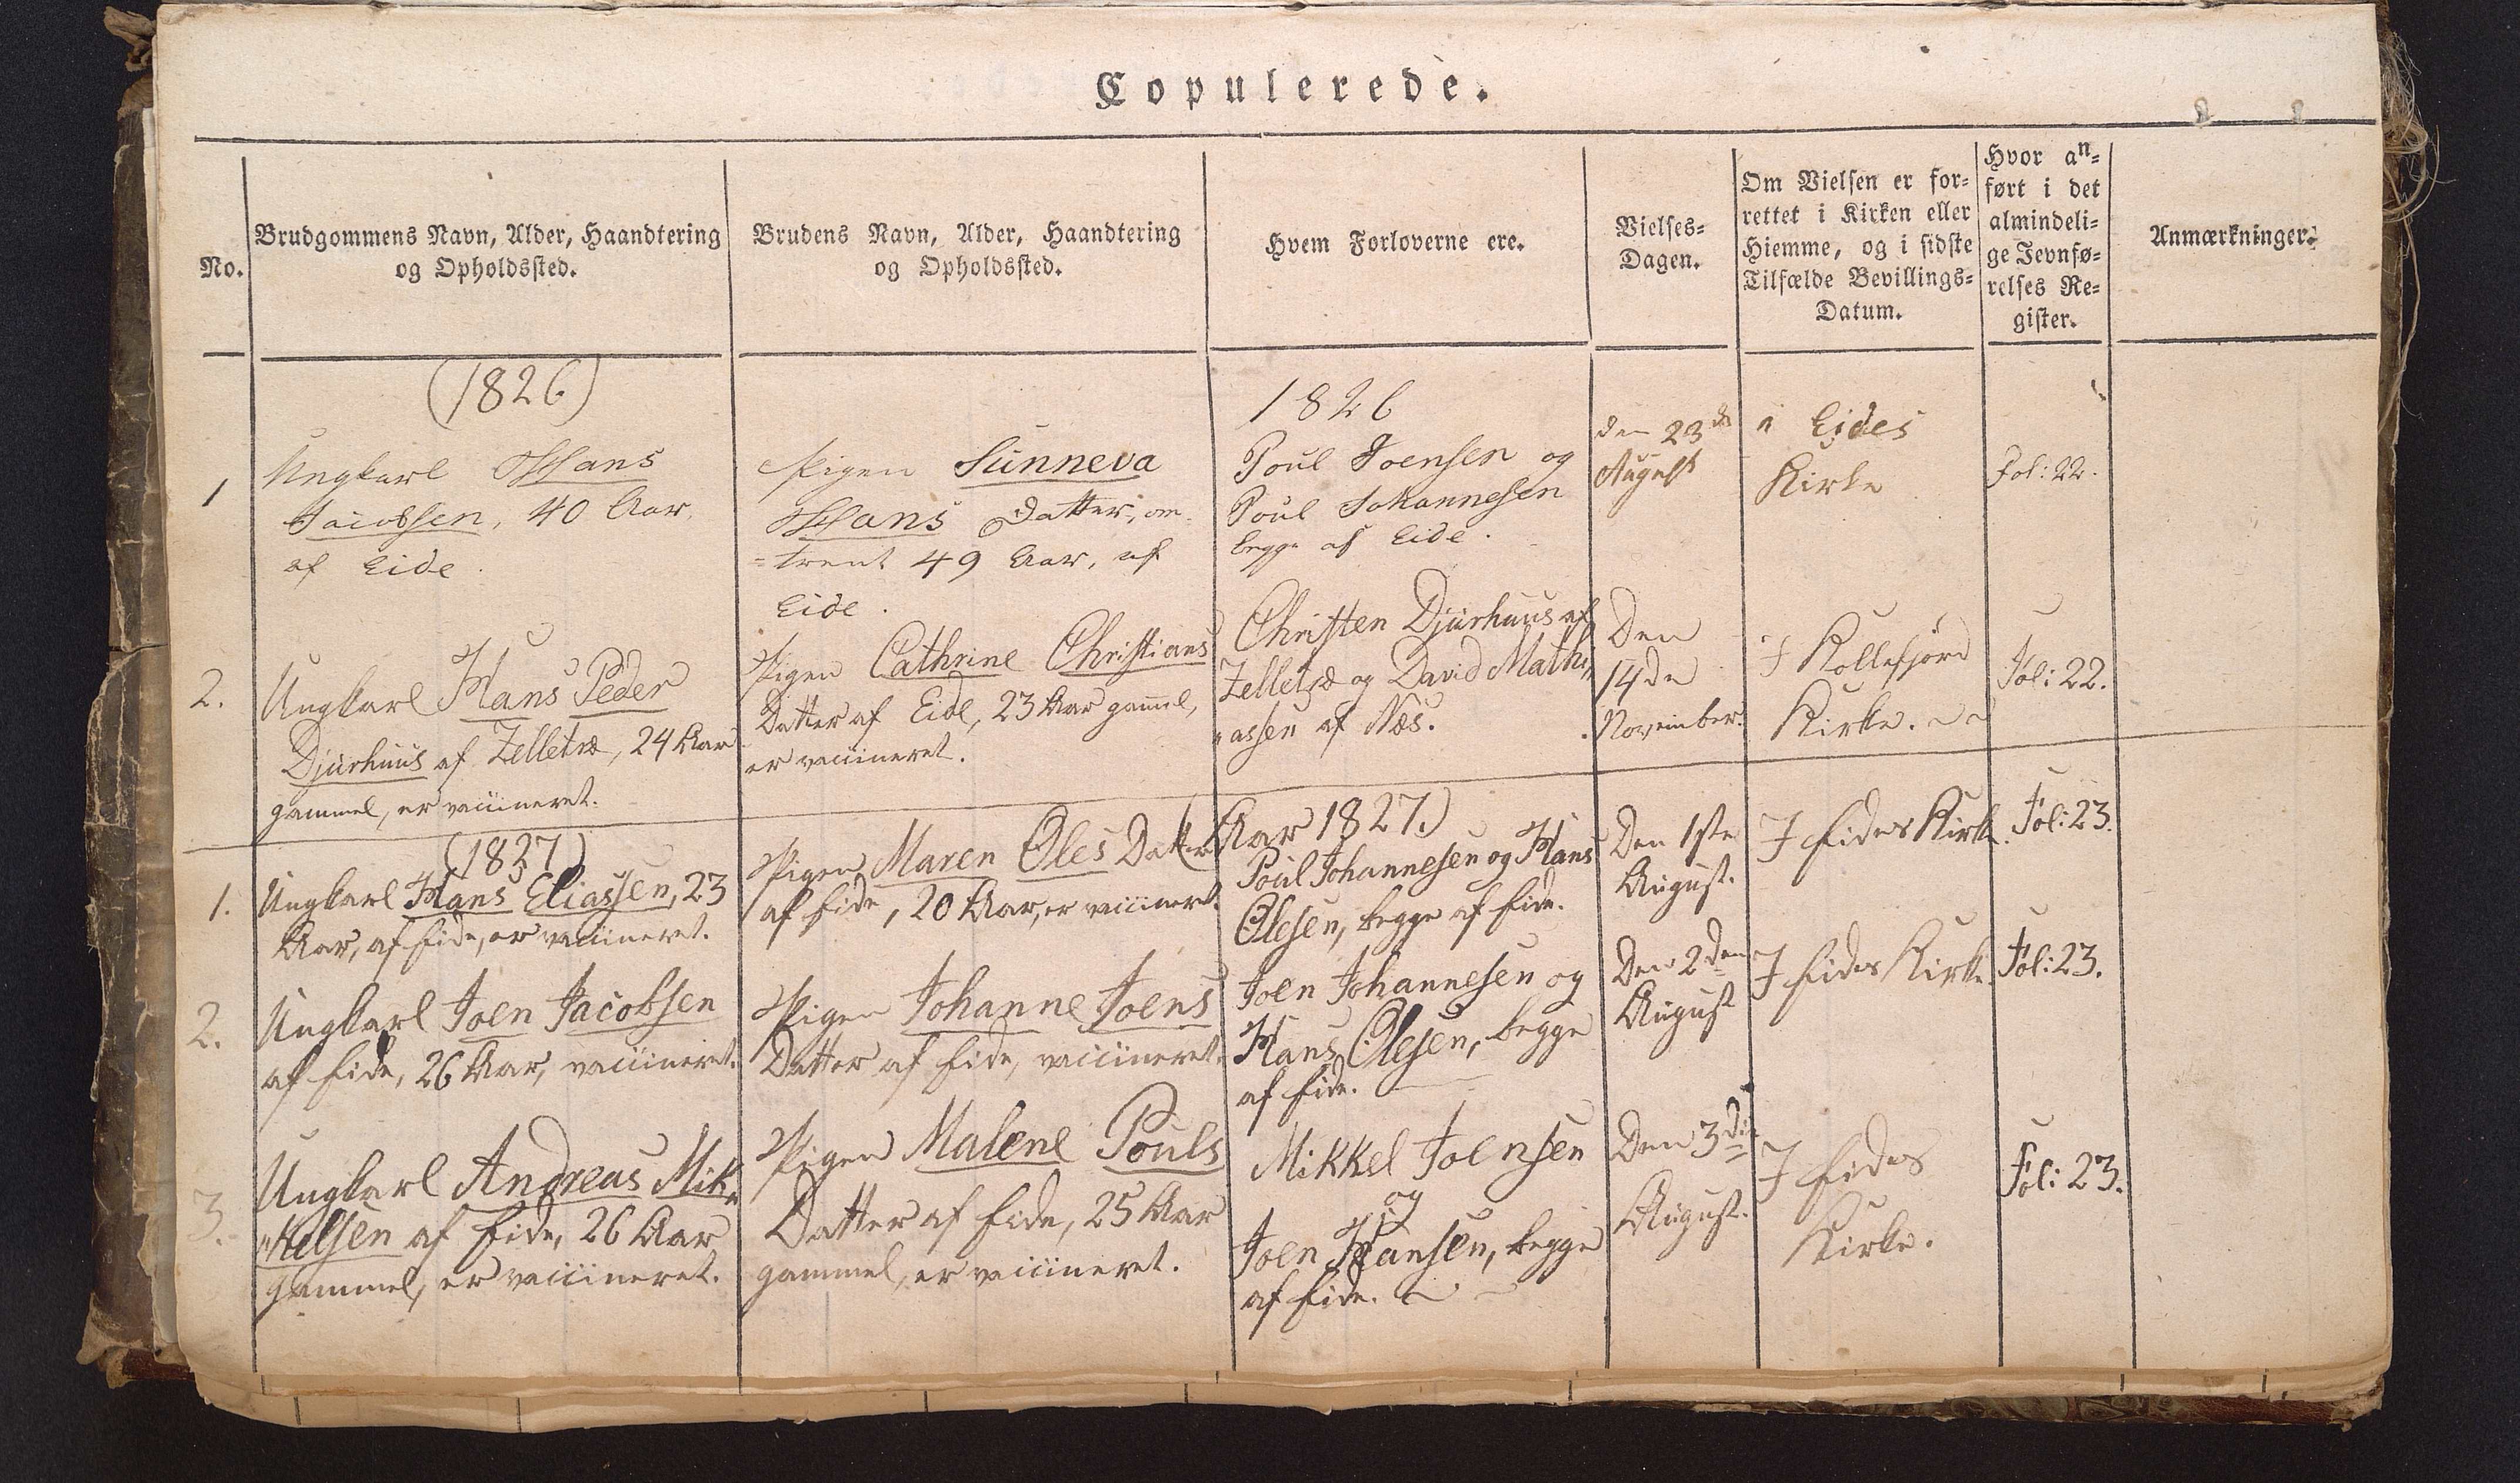 Copulerede.
No.
Brudgommens Navn, Alder, Haandtering
og Opholdssted.
Brudens Navn, Alder, Haandtering
og Opholdssted.
Hvem Forloverne ere.
Vielses=
Dagen.
Om Vielsen er for=
rettet i Kirken eller
Hiemme, og i sidste
Tilfælde Bevillings=
Datum.
Hvor an=
ført i det
almindeli=
ge Jevnfø=
relses Re=
gister.
Anmærkninger.
(1826)
1
Ungkarl Hans
Jacobsen, 40 Aar,
af Eide.
Pigen Sunneva
Hans Datter, om=
=trent 49 Aar, af
Eide.
1826
Poul Joensen og
Poul Johannesen
begge af Eide.
den 23de
August
i Eides
Kirke
Fol: 22.
2.
Ungkarl Hans Peder
Djurhuus af Zelletræ, 24 Aar
gammel, er vaccineret.
Pigen Cathrine Christians
Datter af Eide, 23 Aar gammel,
er vaccineret.
Christen Djurhuus af
Zelletræ og David Mathi„
„assen af Næs.
Den
14de
November.
I Kollefjörd
Kirke.
Fol: 22.
(1827)
1.
Ungkarl Hans Eliassen, 23
Aar, af Eide, er vaccineret.
Pigen Maren Oles Datter
af Eide, 20 Aar, er vaccineret.
(Aar 1827.)
Poul Johannesen og Hans
Olesen, begge af Eide.
Den 1ste
August.
I Eides Kirke.
Fol: 23.
2.
Ungkarl Joen Jacobsen
af Eide, 26 Aar, vaccineret.
Pigen Johanne Joens
Datter af Eide, vaccineret.
Joen Johannesen og
Hans Olesen, begge
af Eide.
Den 2den
August
I Eides Kirke.
Fol: 23.
3.
Ungkarl Andreas Mik„
„kelsen af Eide, 26 Aar
gammel, er vaccineret.
Pigen Malene Pouls
Datter af Eide, 25 Aar
gammel, er vaccineret.
Mikkel Joensen
og
Joen Hansen, begge
af Eide.
Den 3die
August.
I Eides
Kirke.
Fol: 23.